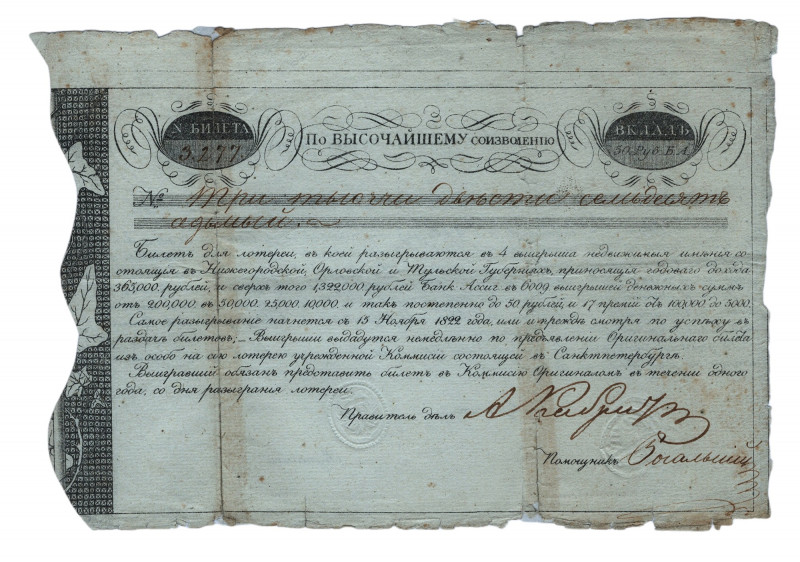 № БИЛЕТА
3277.
По ВЫСОЧАЙШЕМУ СОИЗВОЛЕНIЮ
ВКЛАДЪ
50 Руб. Б.А.
№ Три тысячи двѣсти семьдесятъ
седьмый.
Билетъ для лотереи, въ коей разыгрываются въ 4 выигрыша недвижимыя имѣнiя со-
стоящiя въ Нижегородской, Орловской и Тульской Губернiяхъ, приносящiя годоваго дохода
365,000 рублей, и сверхъ того 1,322,000 рублей Банк. Ассиг. въ 6009 выигрышей денежныхъ суммъ
отъ 200,000 въ 50,000. 25,000. 10,000. и такъ постепенно до 50 рублей и 17 премiй отъ 100,000 до 5000.
Самое разыгрыванiе начнется съ 15 Ноября 1822 года, или и прежде смотря по успѣху въ
раздачѣ билетовъ; — Выигрыши выдадутся немедлѣнно по предъявленiи Оригинальнаго билета
изъ особо на сiю лотерею учрежденной Коммисiи состоящей въ Санктпетербургѣ.
Выигравшiй обязанъ представить билетъ въ Коммисiю Оригиналомъ въ теченiи одного
года, со дня разыгранiя лотереи.
Правитель дѣлъ
Помощникъ